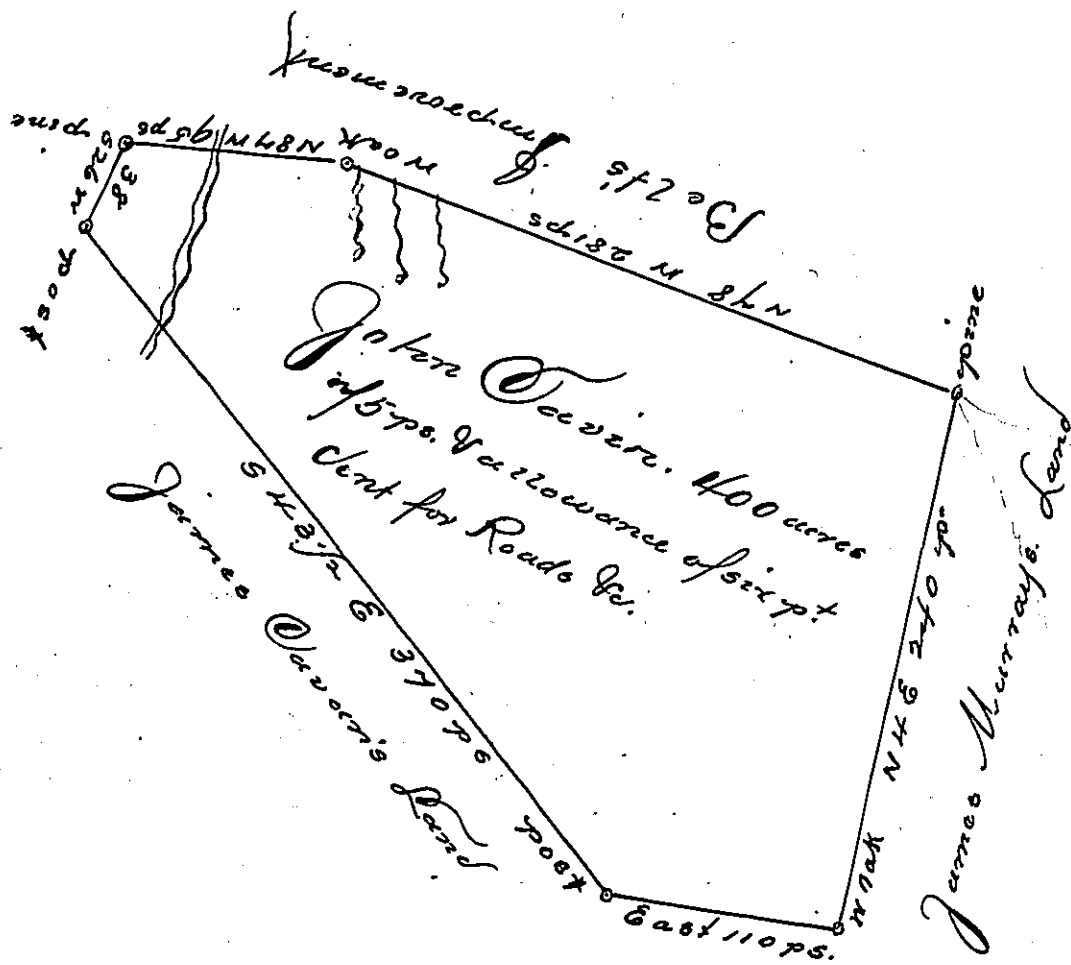 Bells Improvement
pine
N 87 W 95 ps
W oak
N 48 W 281 ps
pine
S 26 W
38
post
John Davin. 400 acres
n/5 ps. & allowance of six p.t
Cent for Roads &c.
S 43 1/2 E 370 ps
James Davon's Land
post
East 110 ps.
W oak
N 4 E 240 p.
James Murrays. Land